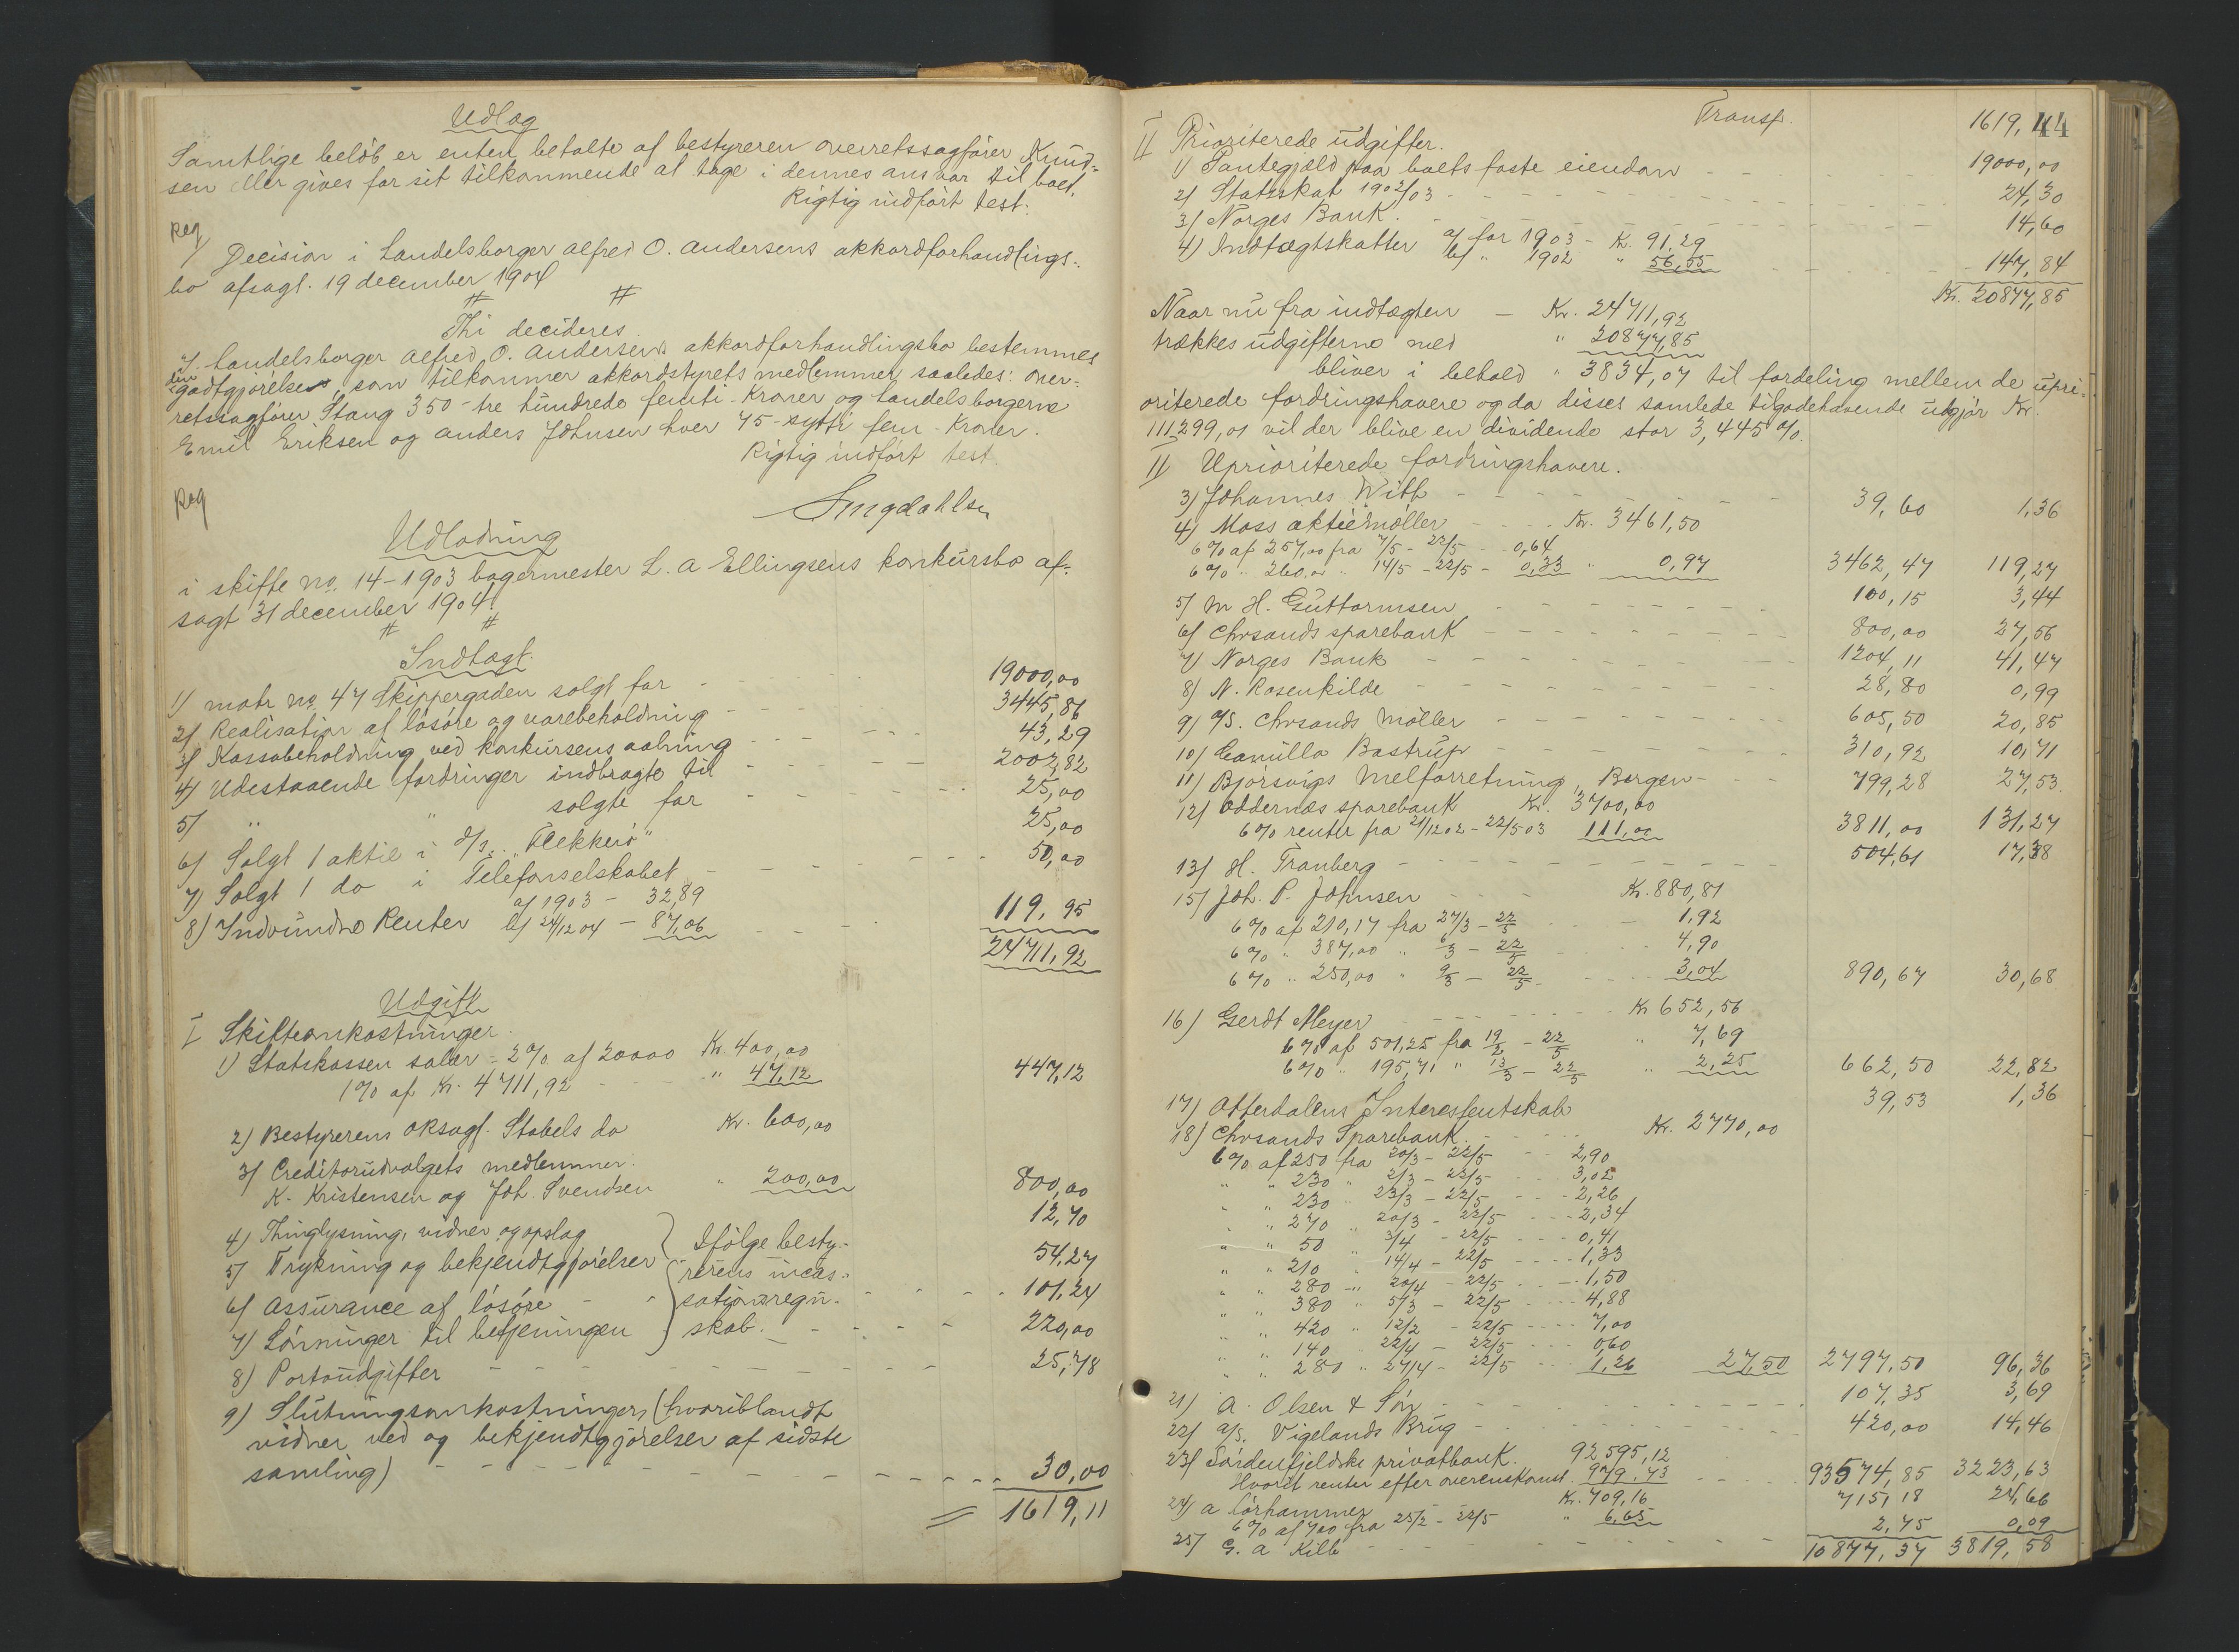 Udlæg
Samtlige beløb er enten betalte af bestyreren overretssagfører Knud-
sen eller gives for sit tilkommende at tage i dennes ansvar til boet.
Rigtig indført test:
Reg
Decision i Handelsborger Alfred O. Andersens akkordforhandlings-
bo afsagt. 19 december 1904
# #
Thi decideres
I handelsborger Alfred O. Andersens akkordforhandlingsbo bestemmes
den godtgjørelse, som tilkommer akkordstyrets medlemmer saaledes: over-
retssagfører Stang 350 - tre hundrede femti - Kroner og handelsborgerne
Emil Eriksen og Anders Johnsen hver 75 - sytti fem - Kroner.
Rigtig indført test.
Reg
Udlodning
i skifte no. 14-1903 bagermester L. A Ellingsens konkursbo af-
sagt 31 december 1904.
# #
Indtægt.
1) matr no. 47 Skippergaden solgt for - - 19000,00
2) Realisation af løsøre og varebeholdning - - 3445,86
3) Kassabeholdning ved konkursens aabning - - 43,29
4) Udestaaende fordringer indbragte til - - 2002,82
5) " " solgte for - - 25,00
6) Solgt 1 aktie i D/S. "Flekkerø" - - 25,00
7) Solgt 1 do i Telefonselskabet - - 50,00
8) Indvundne Renter a) 1903 - 32,89
b) 24/12 04 - 87,06 - - 119,95
24711,92
Udgift
I Skifteomkostninger.
1) Statskassen salær = 2% af 20000 Kr. 400,00
1% af Kr. 4711,92 - - " 47,12 447,12
2) Bestyrerens oksagf. Stabels do Kr. 600,00
3) Creditorudvalgets medlemmer.
K. Kristensen og Joh. Svendsen " 200,00 800,00
4) Thinglysning, vidner og opslag 12,70
5) Trykning og bekjendtgjørelser 54,27
6) Assurance af løsøre - - 101,24
7) Lønninger til betjeningen 220,00
Ifølge besty-
rerens incas-
sationsregn-
skab.
8) Portoudgifter - - 25,78
9) Slutningsomkostninger, (hvoriblandt
vidner ved og bekjendtgjørelser af sidste
samling) - - 30,00
= 1619,11
44
Transp. 1619,11
II Prioriterede udgifter.
1) Pantegjæld paa boets faste eiendom - - 19000,00
2) Statsskat 1902/03 - - 24,30
3) Norges Bank. - - 14,60
4) Indtægtskatter a) for 1903 - Kr. 91,29
b) " 1902 " 56,55 - - 147,84
Kr. 20877,85
Naar nu fra indtægten - Kr. 24711,92
trækkes udgifterne med " 20877,85
bliver i behold " 3834,07 til fordeling mellem de upri-
oriterede fordringshavere og da disses samlede tilgodehavende udgjør Kr.
111299,01 vil der blive en dividende stor 3,445%.
II Uprioriterede fordringshavere.
3) Johannes Witt - - 39,60 1,36
4) Moss aktiemøller - - Kr. 3461,50
6% af 257,00 fra 7/5 - 22/5 - - 0,64
6% " 260,00 " 14/5 - 22/5 - 0,33 " 0,97 3462,47 119,27
5) M H. Guttormsen - - 100,15 3,44
6) Chrsands sparebank - - 800,00 27,56
7) Norges Bank - - 1204,11 41,47
8) N. Rosenkilde - - 28,80 0,99
9) A/S. Chrsands Møller - - 605,50 20,85
10) Camilla Bastrup - - 310,92 10,71
11) Bjørsvigs Melforretning, Bergen - - 799,28 27,53
12) Oddernæs sparebank Kr. 3700,00
6% renter fra 21/12 02 - 22/5 03 111,00 3811,00 131,27
13) H. Tranberg - - 504,61 17,38
15) Joh. P. Johnsen - - Kr. 880,81
6% af 210,17 fra 27/3 - 22/5 - - 1,92
6% " 387,00 " 6/3 - 22/5 - - 4,90
6% " 250,00 " 9/3 - 22/5 - - 3,04 890,67 30,68
16) Gerdt Meyer - - Kr 652,56
6% af 501,25 fra 19/2 - 22/5 " 7,69
6% " 195,71 " 13/3 - 22/5 " 2,25 662,50 22,82
17) Otterdalens Interessentskab 39,53 1,36
18) Chrsands Sparebank. - - Kr. 2770,00
6% af 250 fra 20/3 - 22/5 - - 2,90
" " 230 " 2/3 - 22/5 - - 3,02
" " 230 " 23/3 - 22/5 - - 2,26
" " 270 " 20/3 - 22/5 - - 2,34
" " 50 " 3/4 - 22/5 - - 0,41
" " 210 " 14/4 - 22/5 - - 1,33
" " 280 " 20/4 - 22/5 - - 1,50
" " 380 " 5/3 - 22/5 - - 4,88
" " 420 " 12/2 - 22/5 - - 7,00
" " 140 " 22/4 - 22/5 - - 0,60
" " 280 " 27/4 - 22/5 - - 1,26 27,50 2797,50 96,36
21) A. Olsen & Søn - - 107,35 3,69
22) A/S. Vigelands Brug - - 420,00 14,46
23) Søndenfjeldske privatbank. 92595,12
Hvortil renter efter overenskomst. 979,73 - - 93574,85 3223,63
24) A Lørhammer Kr. 709,16
6% af 700 fra 25/2 - 22/5 " 6,65 715,18 24,66
25) G. A Kilb - - 2,75 0,09
10877,37 3819,58